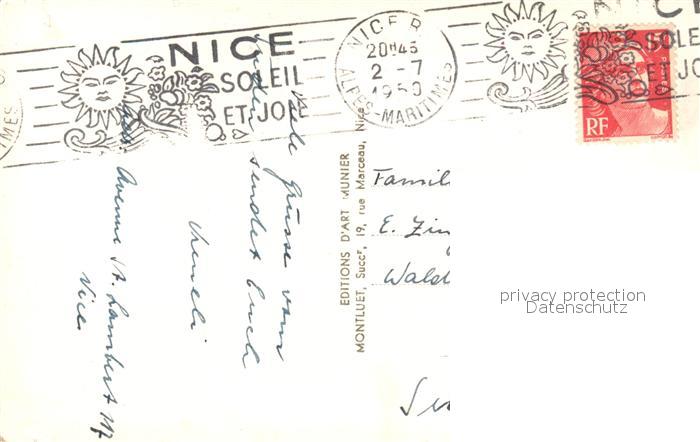 NICE
SOLEIL
ET JOIE
NICE R.
20H45
2-7
1950
ALPES-MARITIMES
SOLEIL
ET JOIE
RF
EDITIONS D'ART MUNIER
MONTLUET, Succr, 19, rue Marceau, Nice
Viele Grüsse vom
sendet Euch
Vreneli
Avenue St. Lambert
Nice
Famil
E. Zin
Wald
privacy protection
Datenschutz